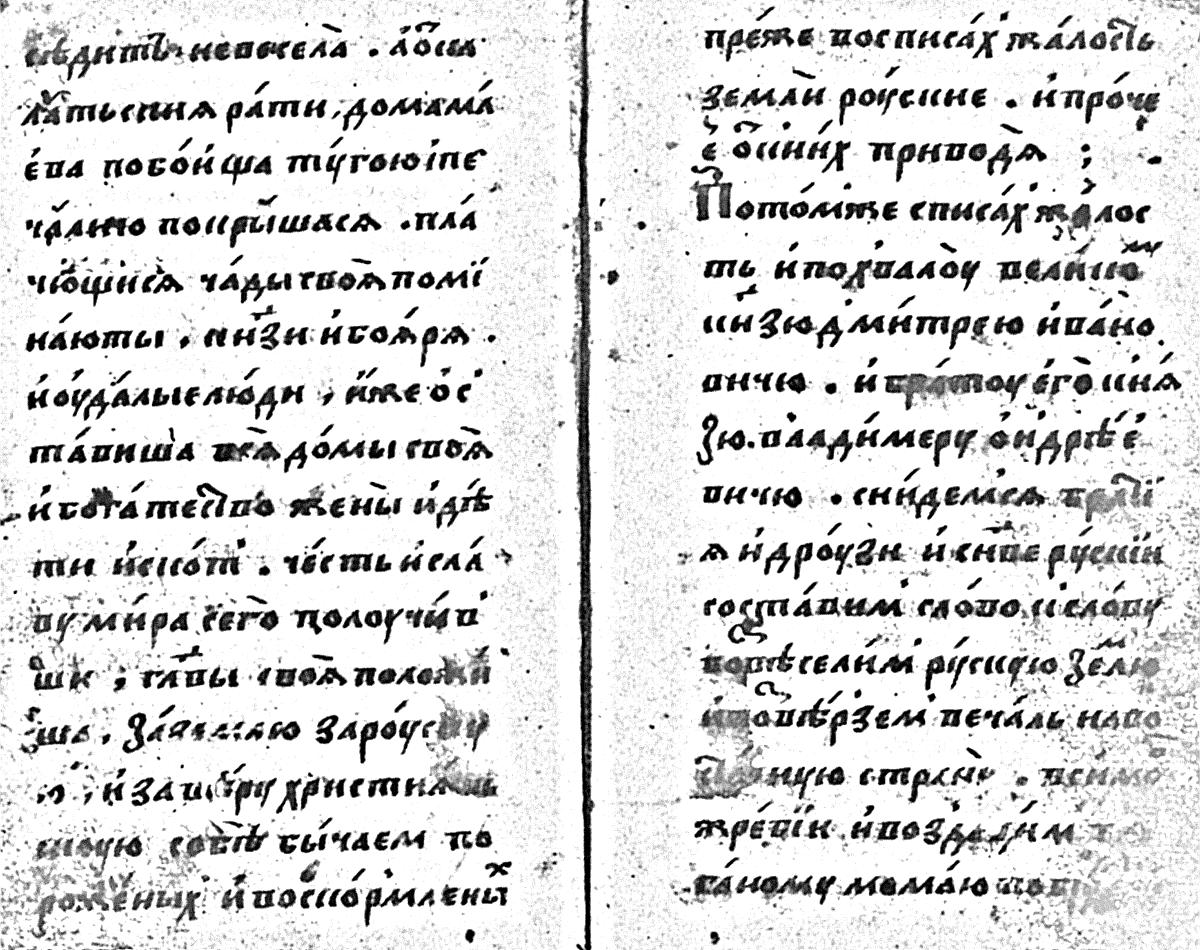 сѣдитъ невесела . а ѡ҆ кал
катьския ра́ти , до мама
е́ва побо́ища ту́гою і пе
ча́лию покры́шася . пла́
чющися ча́ды своя̀ поми
на́юты . кн҃зи и҆ боя́ря .
и҆ оуда́лые лю́ди , и҆же о҆с
та́виша вся̀ до́мы своя̀
и҆ бога́тество̀ жены̀ и҆ дѣ́
ти и҆ ско́т . че́сть и҆ сла́
ву ми́ра сего̀ полоучи́в
ши ; гл҃вы своя̀ положи́
ша . за землю за ро́ускую
и҆ за вѣру христиа
скоую собѣ бы́чаем по
роже́ных и҆ воско́рмлены̀х
пре́же восписа́х жа́лость
землѝ роу́ские . и҆ про́че
е҆ ѿ кни́х приводя̀ ;
Пото́м же списа́х жа́лос
ть и҆ похвалоу̀ вели́кому
кн҃зю дми́трею и҆ва́но
вичю . и҆ бра́тоу е҆го̀ кня́
зю . влади́меру о҆ндрѣ́е
вичю . сни́демся бра́ти
я и҆ дро́узи и҆ сн҃ве ру́скии
соста́вим сло́во к сло́ву
возвесели́м ру́скую землю
и҆ ѿве́рзем печа́ль на во
сточную страну̀ . в симо
жре́бии и҆ возда́дим
га́ному мома́ю побѣ